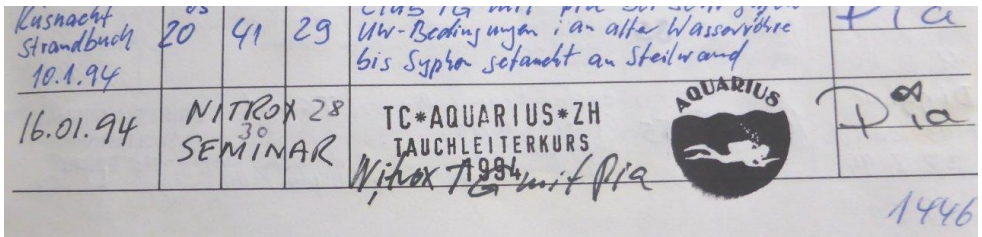 Küsnacht
Strandbuch 20 41 29 UW-Bedingungen i an alter Wasserröhre
10.1.94 bis Syphon getaucht an Steilwand
Pia
16.01.94 NITROX 28
30
SEMINAR
TC*AQUARIUS*ZH
TAUCHLEITERKURS
1994
Nitrox TG mit Pia
AQUARIUS
Pia
1446